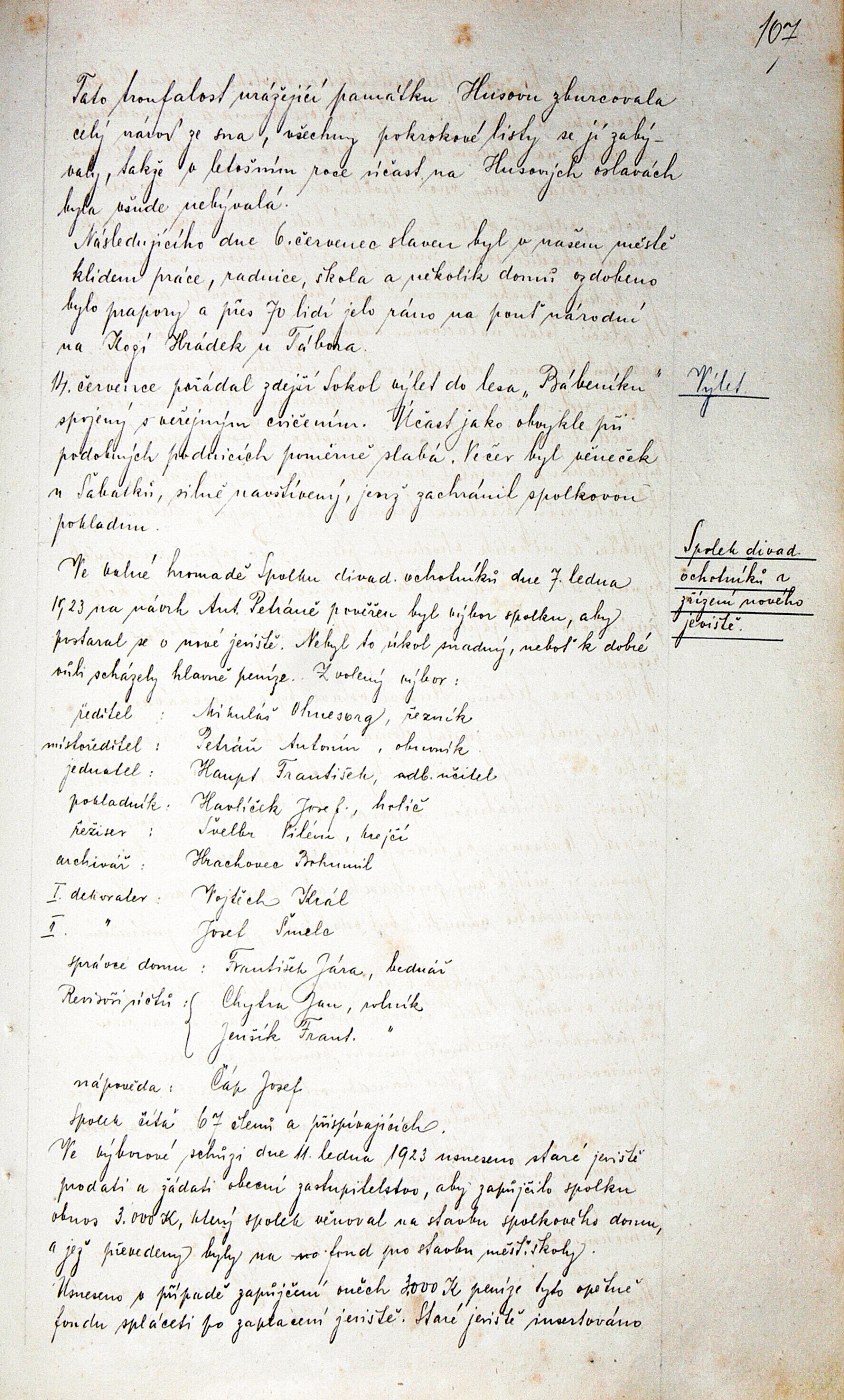 107
Tato troufalost urážející památku Husovu zburcovala
celý národ ze sna, všechny pokrokové listy se jí zabý-
valy, takže v letošním roce účast na Husových oslavách
byla všude nebývalá.
Následujícího dne 6. červenec slaven byl v našem městě
klidem práce, radnice, škola a několik domů ozdobeno
bylo prapory a přes 70 lidí jelo ráno na pouť národní
na Kozí Hrádek u Tábora.
14. července pořádal zdejší Sokol výlet do lesa „Bábeníku"
Výlet
spojený s veřejným cvičením. Účast jako obvykle při
podobných podnicích poměrně slabá. Večer byl věneček
u Šabatků, silně navštívený, jenž zachránil spolkovou
pokladnu.
Spolek divad.
ochotníků a
zřízení nového
jeviště.
Ve valné hromadě Spolku divad. ochotníků dne 7. ledna
1923 na návrh Ant. Petráně pověřen byl výbor spolku, aby
postaral se o nové jeviště. Nebyl to úkol snadný, neboť k dobré
vůli scházely hlavně peníze. Zvolený výbor:
ředitel : Mikuláš Ohnesorg, řezník
místořediel : Petráň Antonín, obuvník
jednatel : Haupt František, odb. učitel
pokladník. Havlíček Josef., holič
režiser : Švelbr Vilém, krejčí
archivář : Hrachovec Bohumil
I. dekorater : Vojtěch Král
II. " Josef Šmelc
správce domu : František Jára, bednář
Revisoři účtů : { Chytra Jan, rolník
Jenšík Frant. "
nápověda : Čáp Josef
Spolek čítá 67 členů a přispívajících.
Ve výborové schůzi dne 11. ledna 1923 usneseno staré jeviště
prodati a žádati obecní zastupitelstvo, aby zapůjčilo spolku
obnos 3.000 K, který spolek věnoval na stavbu spolkového domu,
a jež převedeny byly na fond pro stavbu měšť. školy.
Usneseno v případě zapůjčení oněch 3000 K peníze tyto opětně
fondu spláceti po zaplacení jeviště. Staré jeviště insertováno